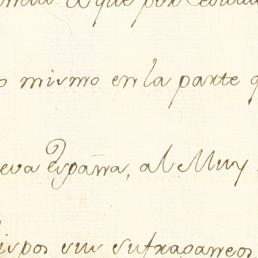 que por
o mismo en la parte q
eva España, al Muy
ispos sus sufraganeos